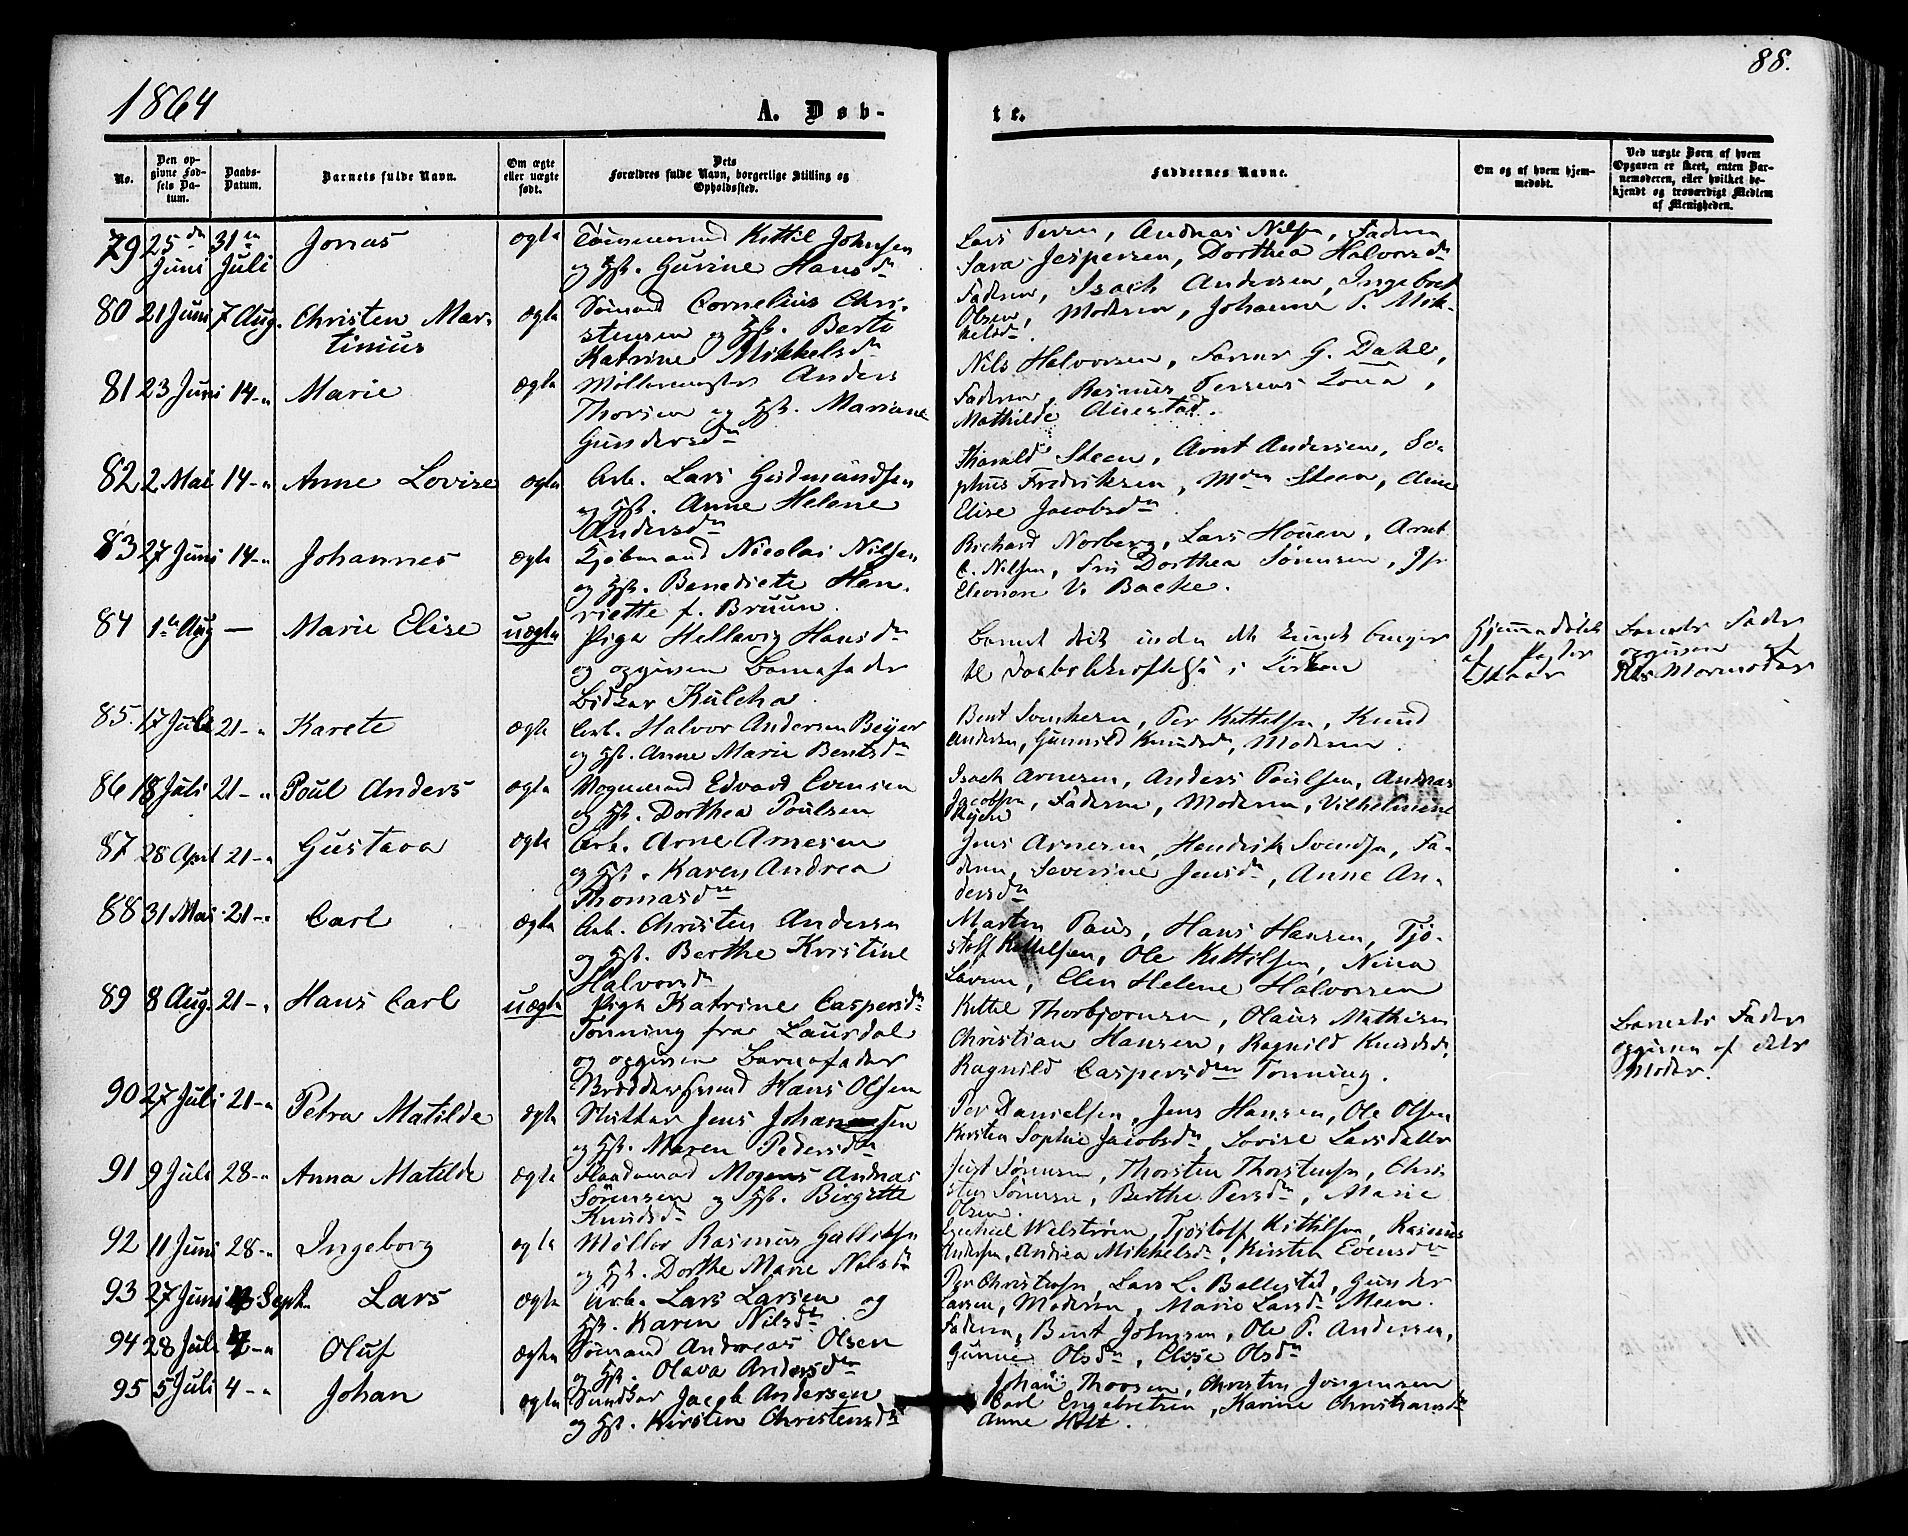 1864
A. Døb-
te.
88.
No.
Den op-
givne Fød-
sels Da-
tum.
Daabs-
Datum.
Barnets fulde Navn.
Om ægte
eller uægte
født.
Dets
Forældres fulde Navn, borgerlige Stilling og
Opholdssted.
Faddernes Navne.
Om og af hvem hjem-
medøbt.
Ved uægte Børn af hvem
Opgaven er skeet, enten Bar-
nemoderen, eller hvilket be-
kjendt og troværdigt Medlem
af Menigheden.
79 25de Juni 31en Juli Jonas ægte Tømmermand Kittil Johnsen
og Hst. Gurine Hansdr
Lars Andreas Nilsen, Faderen
Sara Jespersen, Dorthea Halvorsdr
80 21 Juni 7 Aug. Christen Mar-
tinius ægte Sømand Cornelius Chri-
stensen og Hst. Berte
Katrine Mikkelsdr
Faderen, Isach Andersen, Ingebret
Olsen, Moderen, Johanne P. Mik-
kelsdr
81 23 Juni 14-" Marie ægte Møllermester Anders
Thorsen og Hst. Mariane
Gundersdr
Nils Halvorsen, G. Dahl,
Faderen, Rasmus
Mathilde
82 2 Mai 14-" Anne Lovise ægte Arb. Lars Gudmundsen
og Hst. Anne Helene
Andersdr
Tharald Steen, Arnt Andersen, So-
phus Fredriksen, Mdm Steen, Anne
Elise Jacobsdr
83 27 Juni 14-" Johannes ægte Kjøbmand Nicolai Nilsen
og Hst. Benedicte Hen-
riette f. Bruun.
Richard Norberg, Lars Houen, Arnt
C. Nilsen, Dorthea Sørensen, Jfr
Eleonore V. Backe.
84 1ste Aug — Marie Elise uægte Pige Hellevig Hansdr
og opgiven Barnefader
Barnet inden det kunde bringes
til Daabsbekræftelse i Kirken
Hjemmedøbt
af Pastor
Barnets Fader
opgiven af
85. 17 Juli 21-" Karete ægte Arb. Halvor Andersen Beyer
og Hst. Anne Marie Bentsdr
Bent Svenkesen, Per Kittelsen, Knud
Andersen, Gunnild Knudsdr, Moderen.
86 18 Juli 21-" Poul Anders ægte Vognmand Edvard Evensen
og Hst. Dorthea Poulsen
Isach Arnesen, Anders Poulsen, Andreas
Jacobsen, Faderen, Moderen, Vilhelmine
87 28 April 21-" Gustava ægte Arb. Arne Arnesen
og Hst. Karen Andrea
Thomasdr
Jens Arnesen, Hendrik Svendsen, Fa-
deren, Severine Jensdr, Anne An-
dersdr
88 31 Mai 21-" Carl ægte Arb. Christen Andersen
og Hst. Berthe Kristine
Halvorsdr
Marten Paus, Hans Hansen, Tjø-
stolf Kittelsen, Ole Kittilsen, Nina
Larsen, Elen Helene Halvorsen
89 8 Aug. 21-" Hans Carl uægte Pige Katrine Caspersdr
Tønning fra Laurdal
og opgiven Barnefader
Hans Olsen
Kittel Thorbjørnsen, Olaus Mathisen
Christian Hansen, Ragnild Knudsdr,
Ragnild Caspersdr Tønning.
Barnets Fader
opgiven af dets
Moder.
90 27 Juli 21-" Petra Matilde ægte Slutter Jens Johannesen
og Hst. Maren Pedersdr
Per Danielsen, Jens Hansen, Ole Olsen
Kirsten Sophie Jacobsdr, Lovise Larsdatter
91 9 Juli 28-" Anna Matilde ægte Mogens Andreas
Sørensen og Hst. Birgitte
Knudsdr
Just Sørensen, Thorsten Thorstensen, Chri-
sten Sørensen, Berthe Persdr, Marie
Olsen.
92 11 Juni 28-" Ingeborg ægte Møller Rasmus Gulliksen
og Hst. Dorthe Marie Nilsdr
Welstrøm, Tjøstolf Kittilsen, Rasmus
Andersen, Andrea Mikkelsdr, Kirsten Evensdr
93 27 Juni 4 Sept. Lars ægte Arb. Lars Larsen og
Hst. Karen Nilsdr
Per Christensen, Lars L. Ballestad, Gunder
Larsen, Moderen, Marie Larsdr Meen.
94 28 Juli 4-" Oluf ægte Sømand Andreas Olsen
og Hst. Olava Andersdr
Faderen, Bent Johnsen, Ole P. Andersen,
Gunne Olsdr, Elise Olsdr
95 5 Juli 4-" Johan ægte Jacob Andersen
og Hst. Kirsten Christensdr
Johan Thorsen, Christen Jørgensen
Carl Engebretsen, Karine Christiansdr
Anne Holt.